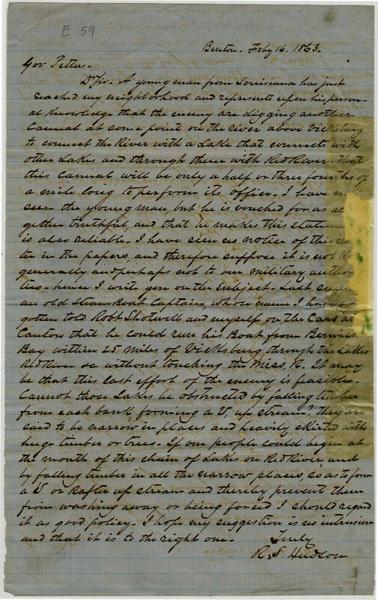 E 59
Benton. Feby 16. 1863.
Gov Pettus.
Dr Sir. A young man from Louisiana has just
reached my neighborhood and represents upon his person-
al knowledge that the enemy are digging another
Cannal at some point on the river above Vicksburg
to connect the River with a Lake that connects with
other Lakes and through them with Red River. that
this cannal will be only a half or three fourths of
a mile long to perform its office. I have n
seen the young man, but he is vouched for as al
gether truthful and that he makes this statem
is also reliable. I have seen no notice of this
ter in the papers, and therefore suppose it is not
generally and perhaps not to our military autho
ties. hence I write you on the subject. Last
an old Steam boat Captain, whose name I have
gotten told Robt Shotwell and myself on the Cars
Canton that he could run his Boat from Berwick
Bay within 25 miles of Vicksburg through the Lakes
Red River &c without touching the Miss R. It may
be that this last effort of the enemy is feasible.
Cannot those Lakes be obstructed by falling timber
from each bank, forming a V, up stream? they are
said to be narrow in places and heavily skirted with
huge timber or trees. If our people could begin at
the mouth of this chain of Lakes on Red River and
by falling timber in all the narrow places, so as to form
a V or Rafter up stream and thereby prevent them
from washing away or being forced I should regard
it as good policy. I hope my suggestion is no intrusion
and that it is to the right one.
Truly
R. S. Hudson